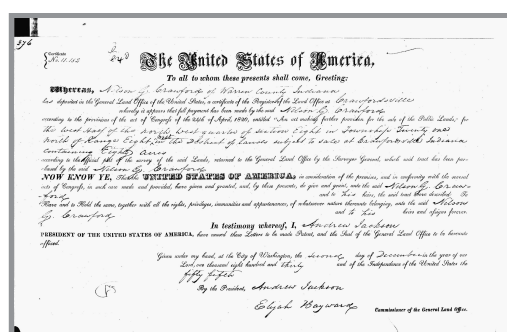 376
Certificate
No. 11.152
The United States of America,
To all to whom these presents shall come, Greeting:
Whereas, Nilson G. Crawford of Warren County Indiana
has deposited in the General Land Office of the United States, a certificate of the Register of the Land Office at Crawfordsville
whereby it appears that full payment has been made by the said Nilson G. Crawford
according to the provisions of the act of Congress of the 24th of April, 1820, entitled "An act making further provision for the sale of the Public Lands," for
the West Half of the North West quarter of Section Eight in Township Twenty one
North of Range Eight, West in the District of Lands subject to sale at Crawfordsville Indiana
containing Eighty acres
according to the official plat of the survey of the said Lands, returned to the General Land Office by the Surveyor General, which said tract has been pur-
chased by the said Nilson G. Crawford
NOW KNOW YE, That the UNITED STATES OF AMERICA, in consideration of the premises, and in conformity with the several
acts of Congress, in such case made and provided, have given and granted, and, by these presents, do give and grant, unto the said Nilson G. Craw-
ford and to his heirs, the said tract above described: To
Have and to Hold the same, together with all the rights, privileges, immunities and appurtenances, of whatsoever nature thereunto belonging, unto the said Nilson
G. Crawford and to his heirs and assigns forever.
In testimony whereof, I, Andrew Jackson
PRESIDENT OF THE UNITED STATES OF AMERICA, have caused these Letters to be made Patent, and the Seal of the General Land Office to be hereunto
affixed.
Given under my hand, at the City of Washington, the second day of December in the year of our
Lord, one thousand eight hundred and thirty and of the Independence of the United States the
fifty fifth
By the President, Andrew Jackson
Elijah Hayward Commissioner of the General Land Office.